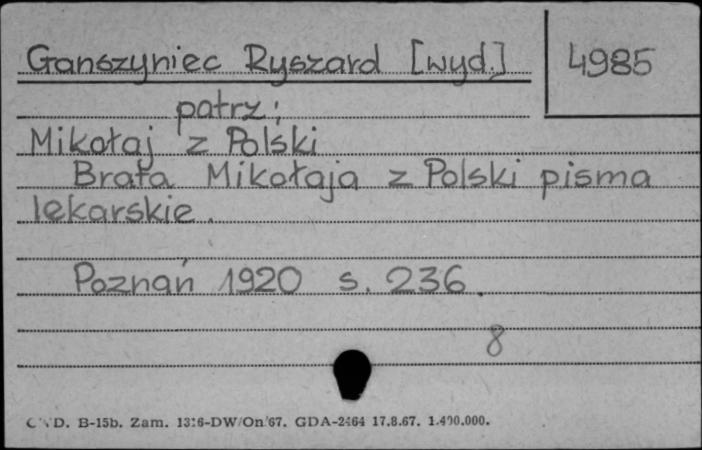 Ganszyniec Ryszard [wyd.]
4985
patrz:
Mikołaj z Polski
Brata Mikołaja z Polski pisma
lekarskie.
Poznań 1920 s. 236.
8
D. B-15b. Zam. 1316-DW/On/67. GDA-2464 17.8.67. 1.400.000.